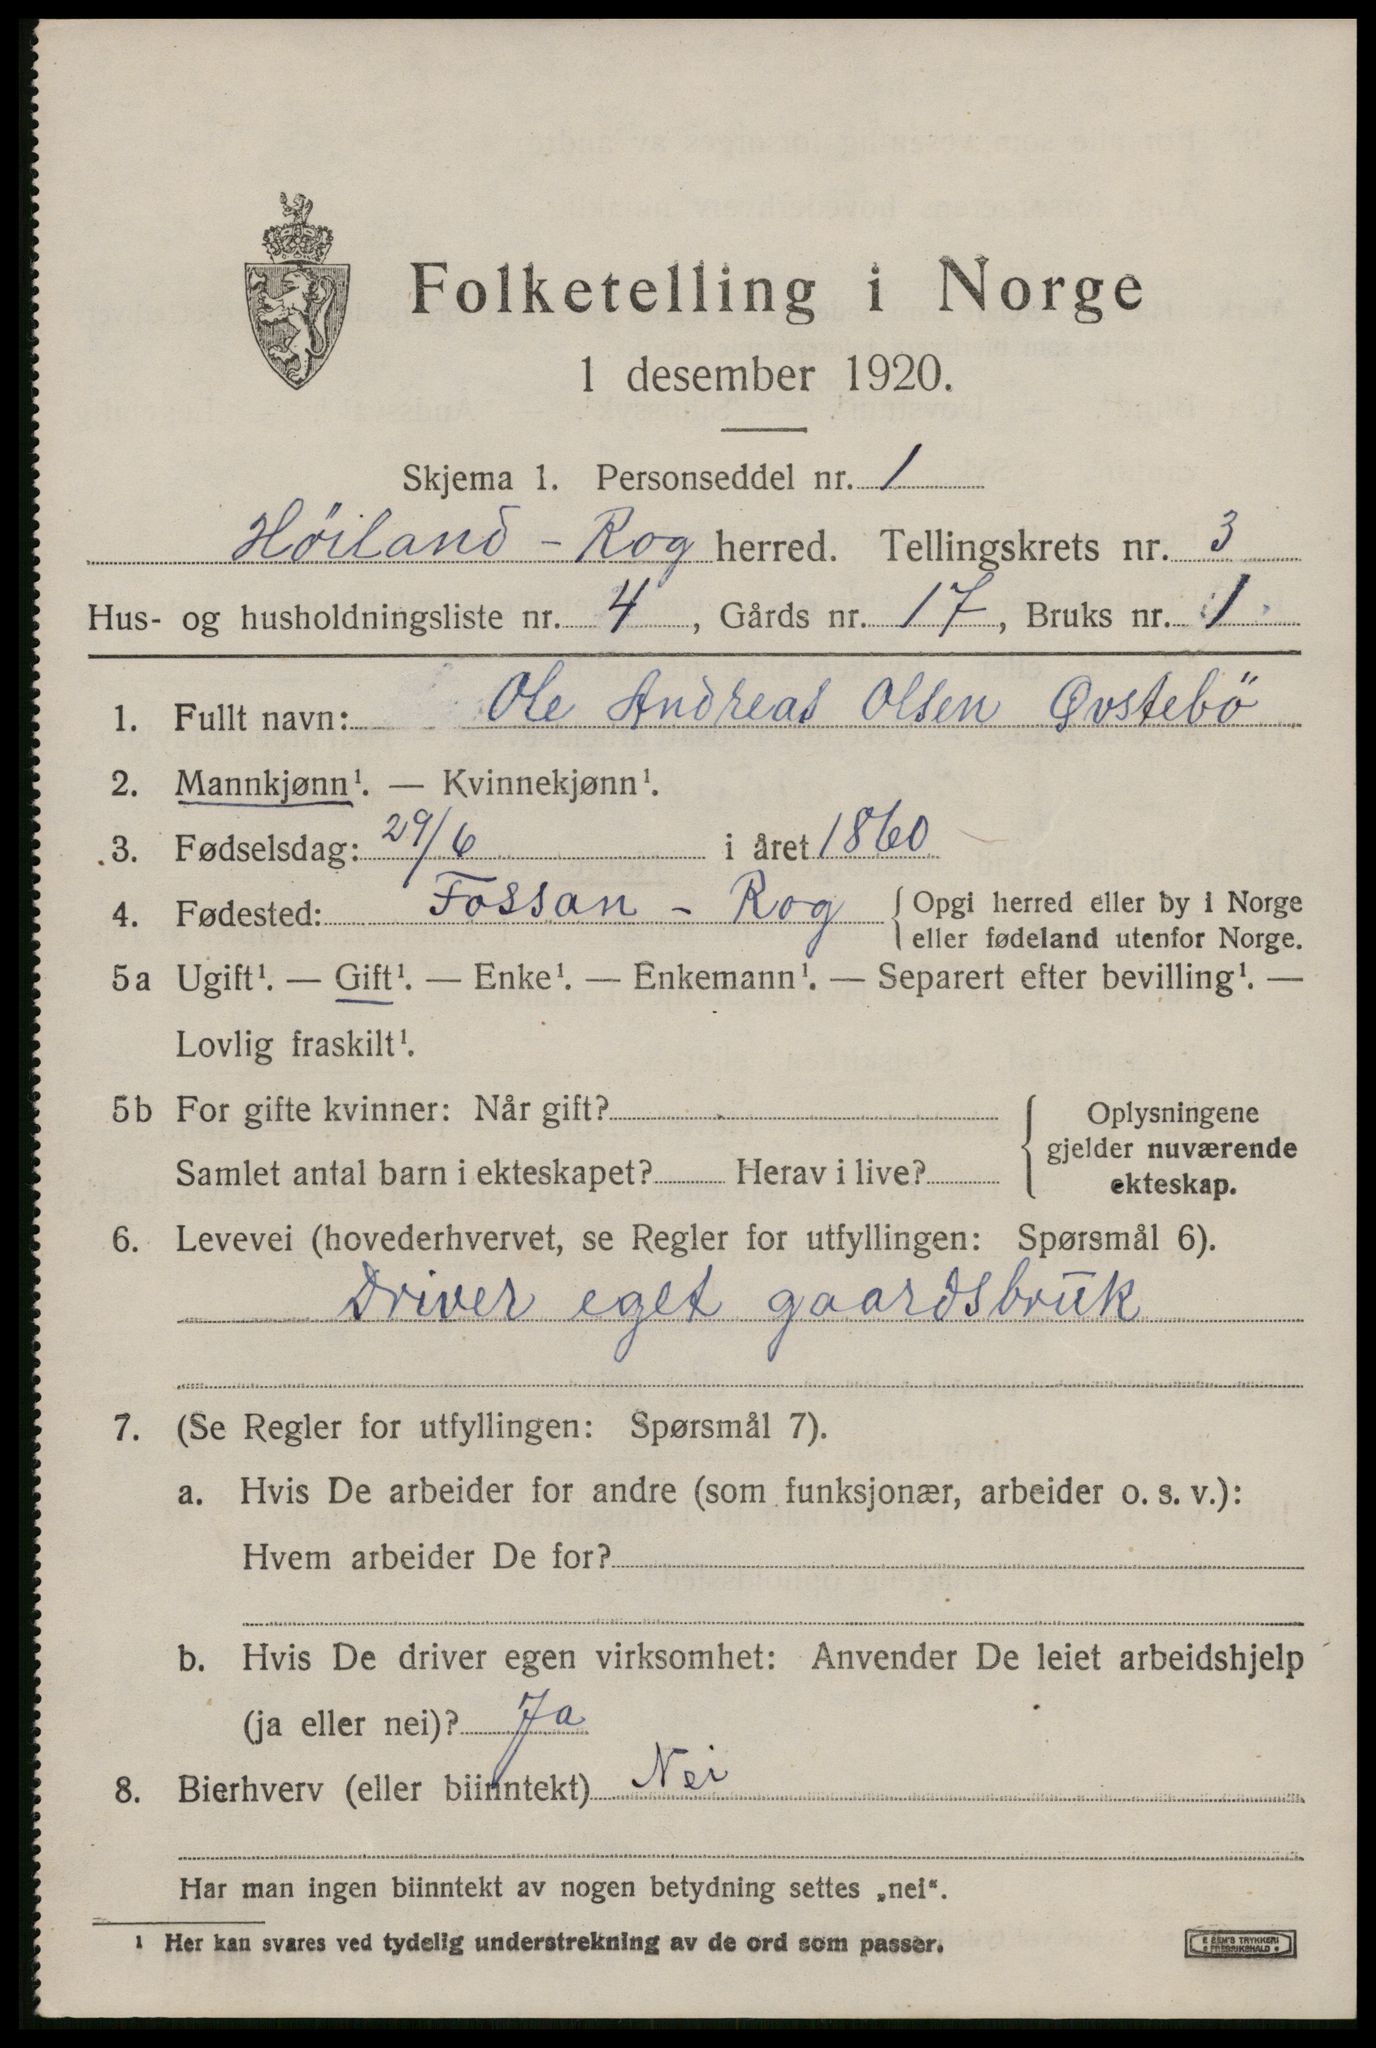 Folketelling i Norge
1 desember 1920.
Skjema 1. Personseddel nr. 1
Höiland - Rog herred. Tellingskrets nr. 3
Hus- og husholdningsliste nr. 4, Gårds nr. 17, Bruks nr. 1
1. Fullt navn: Ole Andreas Olsen Øvstebö
2. Mannkjønn¹. — Kvinnekjønn¹.
3. Fødselsdag: 29/6 i året 1860
4. Fødested: Fossan - Rog { Opgi herred eller by i Norge
eller fødeland utenfor Norge.
5a Ugift¹. — Gift¹. — Enke¹. — Enkemann¹. — Separert efter bevilling¹. —
Lovlig fraskilt¹.
5b For gifte kvinner: Når gift?
Samlet antal barn i ekteskapet? Herav i live?
Oplysningene
gjelder nuværende
ekteskap.
6. Levevei (hovederhvervet, se Regler for utfyllingen: Spørsmål 6).
Driver eget gaardsbruk
7. (Se Regler for utfyllingen: Spørsmål 7).
a. Hvis De arbeider for andre (som funksjonær, arbeider o. s. v.):
Hvem arbeider De for?
b. Hvis De driver egen virksomhet: Anvender De leiet arbeidshjelp
(ja eller nei)? Ja
8. Bierhverv (eller biinntekt) Nei
Har man ingen biinntekt av nogen betydning settes „nei“.
¹ Her kan svares ved tydelig understrekning av de ord som passer.
E SEM'S TRYKKERI
FREDRIKSHALD